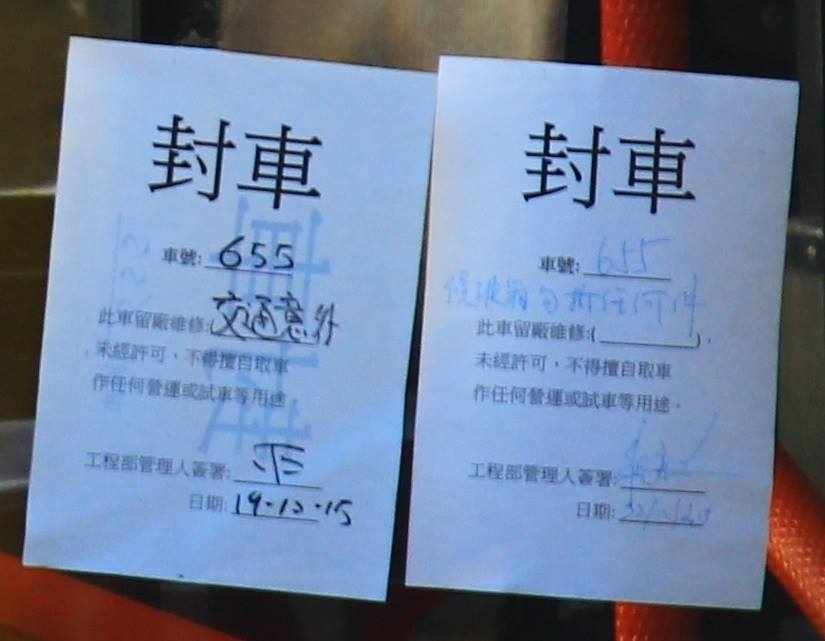 封車
車號: 655
此車留廠維修:(交通意外
未經許可，不得擅自取車
作任何營運或試車等用途。
工程部管理人簽署:
日期: 19-12-15
封車
車號: 655
此車留廠維修:( ).
未經許可，不得擅自取車
作任何營運或試車等用途。
工程部管理人簽署:
日期: